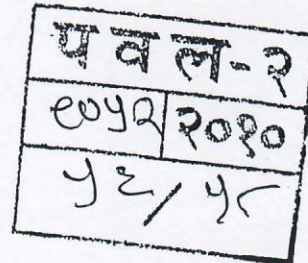 पवल-२
१०५२ २०१०
५६/५८